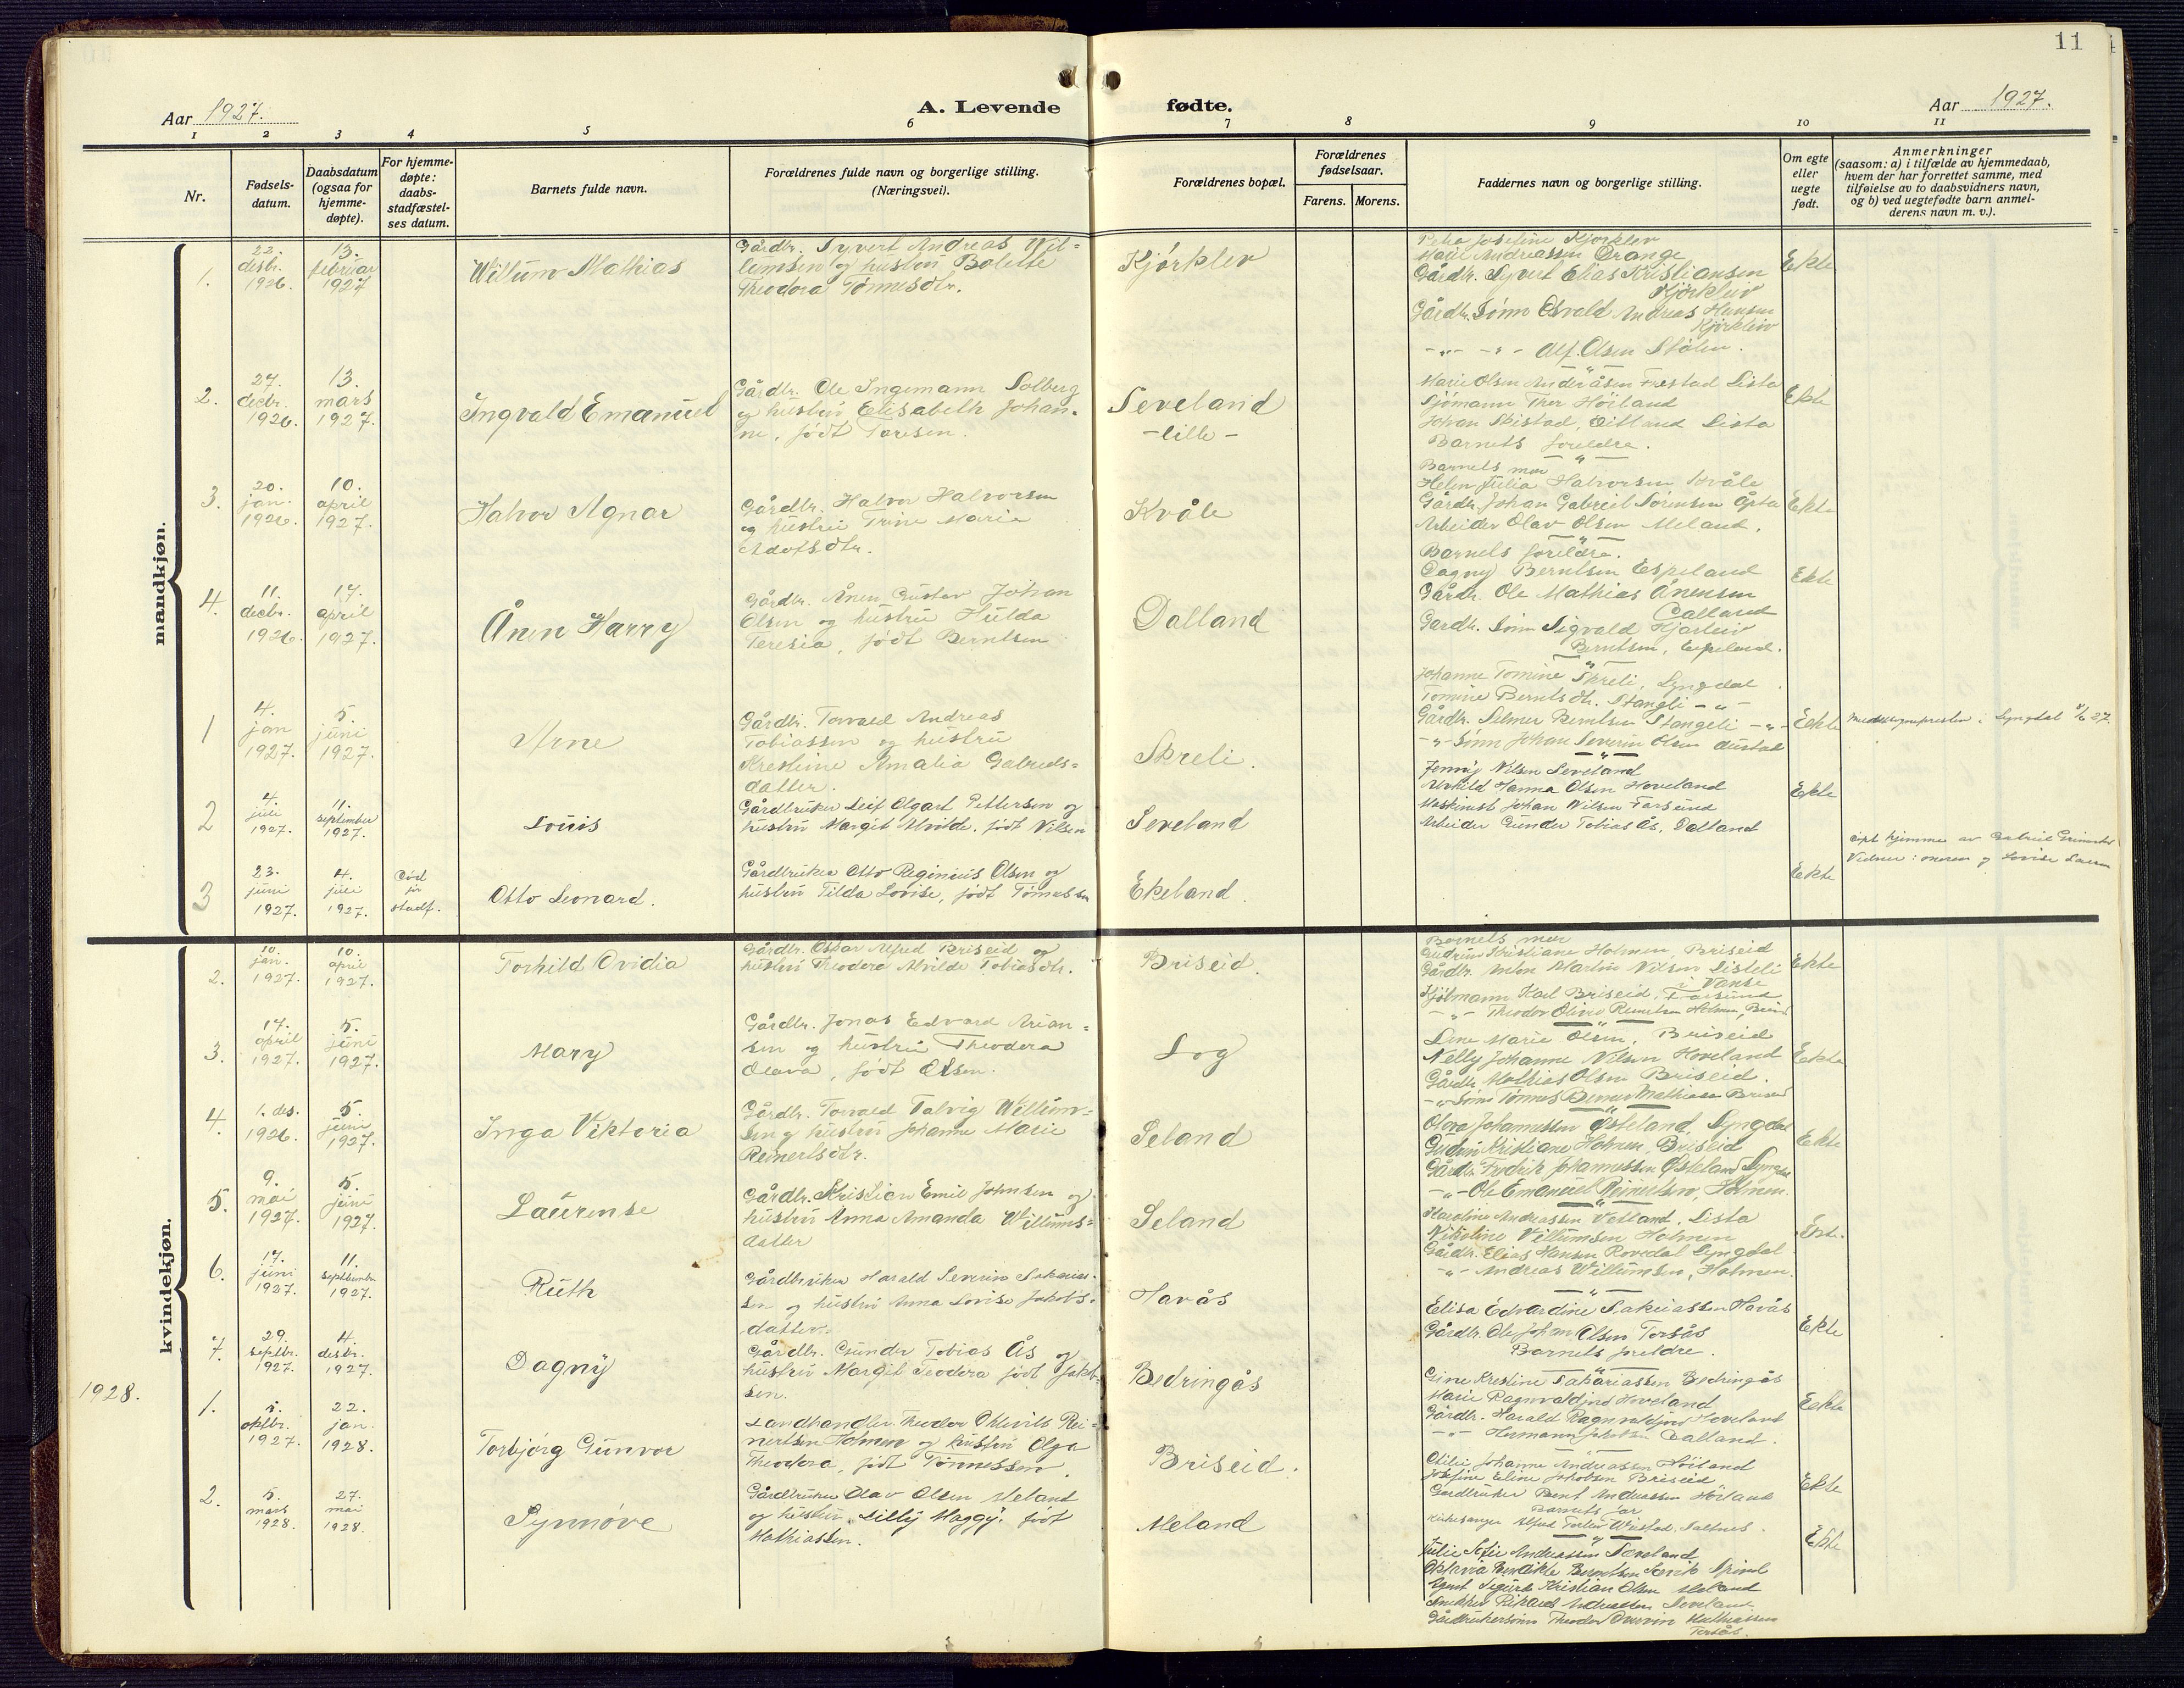 11
Aar 1927.
A. Levende
fødte.
Aar 1927.
1 2 3 4 5 6 7 8 9 10 11
Nr.
Fødsels-
datum.
Daabsdatum
(ogsaa for
hjemme-
døpte).
For hjemme-
døpte:
daabs-
stadfæstel-
ses datum.
Barnets fulde navn.
Forældrenes fulde navn og borgerlige stilling.
(Næringsvei).
Forældrenes bopæl.
Forældrenes
fødselsaar.
Farens. Morens.
Faddernes navn og borgerlige stilling.
Om egte
eller
uegte
født.
Anmerkninger
(saasom: a) i tilfælde av hjemmedaab,
hvem der har forrettet samme, med
tilføielse av to daabsvidners navn,
og b) ved uegtefødte barn anmel-
derens navn m. v.).
mandkjøn.
1.
22.
desbr.
1926.
13.
februar
1927
Willum Mathias
Gårdbr. Syvert Andreas Wil-
lumsen og hustru Bolette
Theodora Tønnesdtr.
Kjørklev
Petra Josefine Kjørklev
Andreassen Orange
Gårdbr. Syvert Elias Kristiansen
Kjørkleiv
Gårdbr. Sønn Osvald Andreas Hansen
Kjørkleiv
-"- -"- Alf. Olsen Stølen.
Ekte
2.
27.
decbr.
1926.
13.
mars
1927.
Ingvald Emanuel
Gårdbr. Ole Ingemann Solberg
og hustru Elisabeth Johan-
ne, født Taresen.
Seveland
-lille-
Marie Olsen Frestad Lista
Sjømann Thor Høiland
Johan Skistad, Lista
Barnets foreldre.
Ekte
3.
20.
jan.
1926.
10.
april
1927.
Halvor Agnar
Gårdbr. Halvor Halvorsen
og hustru Trine Marie
Adolfsdtr.
Kvåle
Barnets mor
Helen Julia Halvorsen Kvåle
Gårdbr. Johan Gabriel Sørensen
Arbeider Olav Olsen Meland.
Ekte
4.
11.
decbr.
1926.
17.
april
1927.
Ånen Harry
Gårdbr. Ånen Gustav Johan
Olsen og hustru Hulda
Teresia, født Berntsen
Dalland
Barnets foreldre.
Dagny Berntsen Espeland
Gårdb. Ole Mathias Ånensen
Dalland
Gardb. sønn Sigvald Hjarleiv
Berntsen, Espeland.
Ekte
1
4.
jan
1927.
5.
juni
1927.
Arne
Gårdbr. Torvald Andreas
Tobiassen og hustru
Krestine Amalia Gabriels-
datter.
Skreli.
Johanne Tomine Skreli, Lyngdal
Tomine Berntsdtr. Stangli -"-
Gårdbr. Selmer Berntsen Stangeli -"-
-"- Sønn Johan Severin Olsen
Eekte
i Lyngdal 27.
2
4.
juli
1927.
11.
september
1927.
Louis
Gårdbruker Leif Olgart Pettersen og
hustru Margit Alvilde, født Nilsen
Seveland
Jenny Nilsen Seveland
Hanna Olsen Hoveland
Maskinist Johan Nilsen Farsund
Arbeider Gunder Tobias Ås, Dalland
Ekte
3
23.
juni
1927.
4.
juli
1927.
Død
før
stadf.
Otto Leonard.
Gårdbruker Otto Reginius Olsen og
hustru Tilda Lovise, født Tønnessen
Ekeland.
Ekte
døpt hjemme av Gabriel
Vidner: moren og Lovise
kvindekjøn.
2.
10.
jan.
1927.
10.
april
1927.
Torhild Ovidia
Gårdbr. Oskar Alfred Briseid og
hustru Theodora Alvilde Tobiasdtr.
Briseid.
Barnets mor
Gudrun Kristiane Holmen, Briseid
Gårdbr. Anton Martin Nilsen Listeli
i Vanse
Karl Briseid, Farsund
-"- Theodor Oliver Reinertsen Holmen, Briseid
Ekte
3.
17.
april
1927.
5.
juni
1927.
Mary
Gårdbr. Jonas Edvard Arian-
sen og hustru Theodora
Olava, født Olsen.
Log
Lene Marie Olsen, Briseid
Nelly Johanne Nilsen Hoveland
Gårdbr. Mathias Olsen Briseid.
-"- Sønn Tønnes Mathiasen Briseid
Eekte
4.
1. des.
1926.
5.
juni
1927.
Inga Viktoria
Gårdbr. Torvald Talvig Willum-
sen og hustru Johanne Marie
Reinertsdtr.
Seland
Olava Johannessen Østeland, Lyngdal
Gudrun Kristiane Holmen, Briseid
Gårdbr. Fredrik Johannessen Østeland Lyngdal
-"- Ole Emanuel Reinertsen, Holmen.
Eekte
5.
9.
mai
1927.
5.
juni
1927.
Laurense
Gårdbr. Kristian Emil Johnsen og
hustru Anna Amanda Willums-
datter
Seland
Karoline Andreassen Vetland, Lista
Nikoline Villumsen Holmen
Gårdbr. Elias Hansen Rovedal Lyngdal
-"- Andreas Willumsen, Holmen.
Ekte.
6.
17.
juni
1927.
11.
septembr.
1927.
Ruth
Gårdbruker Harald Severin Sakarias-
sen og hustru Anna Lovise Jakobs-
datter.
Havås
Elisa Edvardine Sakariassen Havås
Gårdbr. Ole Johan Olsen Torsås
Barnets foreldre.
Ekte
7.
29.
septbr.
1927.
4.
desbr.
1927.
Dagny
Gårdbr. Gunder Tobias Ås og
hustru Margit Teodora født Jakob-
sen.
Bedringås
Gine Krestine Sakariassen Bedringås
Marie Ragnvaldjord Hoveland
Gårdbr. Harald Ragnvaldjord Hoveland
-"- Hermann Jakobsen Dalland.
Eekte
1928.
1.
5.
oktbr.
1927.
22.
jan.
1928.
Torbjørg Gunvor
Landhandler Theodor Rei-
nertsen Holmen og hustru Olga
Theodora, født Tønnessen.
Briseid.
Otilie Johanne Andreassen Høiland
Josefine Eline Jakobsen Briseid
Gårdbruker Bernt Andreassen Høiland
Barnets far
Kirkesanger Alfred
Ekte
2.
5.
mars
1928.
27.
mai
1928.
Synnøve
Gårdbruker Olav Olsen Meland
og hustru Lilly Maggy, født
Mathiassen.
Meland
Julie Sofie Andreassen Seveland
Oktavia Bendikte Berntsen
Agent Sigurd Kristian Olsen Meland
Snekker Rikard Andreassen Seveland
Gårdbrukersønn Theodor Mathiassen
Torsås.
Ekte